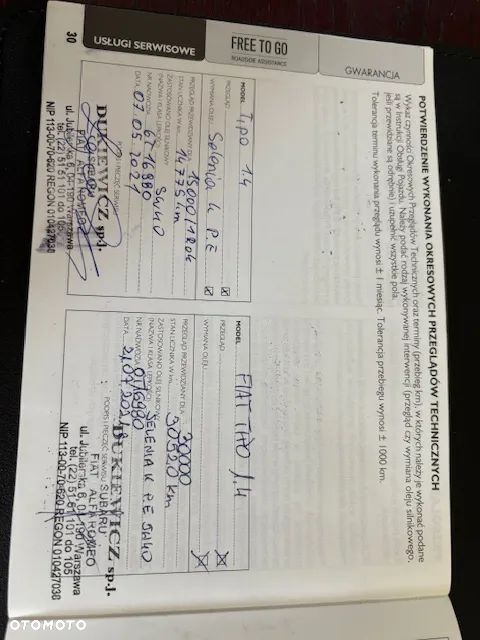 USŁUGI SERWISOWE
FREE TO GO
ROADSIDE ASSISTANCE
GWARANCJA
POTWIERDZENIE WYKONANIA OKRESOWYCH PRZEGLĄDÓW TECHNICZNYCH
Wykaz czynności Okresowych Przeglądów Technicznych oraz terminy (przebieg km), w których należy je wykonać podane
są w Instrukcji Obsługi Pojazdu. Należy podać rodzaj wykonywanej interwencji (przegląd czy wymiana oleju silnikowego,
jeśli przewidziane są odrębnie) i uzupełnić wszystkie pola.
Tolerancja terminu wykonania przeglądu wynosi ± 1 miesiąc. Tolerancja przebiegu wynosi ± 1000 km.
MODEL Tipo 1.4
PRZEGLĄD
WYMIANA OLEJU
PRZEGLĄD PRZEWIDZIANY DLA 15000/1 rok
STAN LICZNIKA W km 14775 km
ZASTOSOWANO OLEJ SILNIKOWY Selenia K P.E
(NAZWA I KLASA LEPKOŚCI) 5W40
NR NADWOZIA 6T16980
DATA 07.05.2021
PODPIS I PIECZĘĆ SERWISU
DUKIEWICZ sp.j.
SUBARU
FIAT ALFA ROMEO
ul. Jubilerska 6, 04-190 Warszawa
tel. (22) 51 51 110 do 105
NIP 113-00-70-620 REGON 010427036
MODEL FIAT TIPO 1.4
PRZEGLĄD
WYMIANA OLEJU
PRZEGLĄD PRZEWIDZIANY DLA 30000
STAN LICZNIKA W km 30520 km
ZASTOSOWANO OLEJ SILNIKOWY
(NAZWA I KLASA LEPKOŚCI) SELENIA K P.E 5W40
NR NADWOZIA
DATA
PODPIS I PIECZĘĆ SERWISU
DUKIEWICZ sp.j.
SUBARU
FIAT ALFA ROMEO
ul. Jubilerska 6, 04-190 Warszawa
tel. (22) 51 51 101 do 105
NIP 113-00-70-620 REGON 010427036
30
OTOMOTO